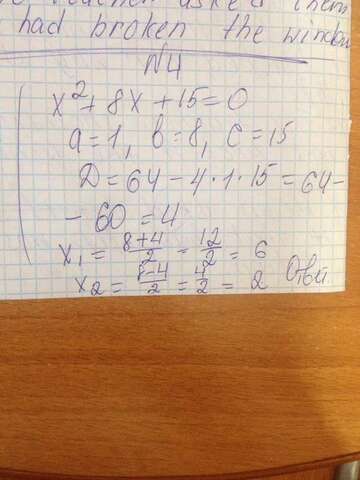 teacher asked them
had broken the window
N4
x²+8x+15=0
a=1, b=8, c=15
D=64-4·1·15=64-
-60=4
x₁=\frac{8+4}{2}=\frac{12}{2}=6
x₂=\frac{8-4}{2}=\frac{4}{2}=2